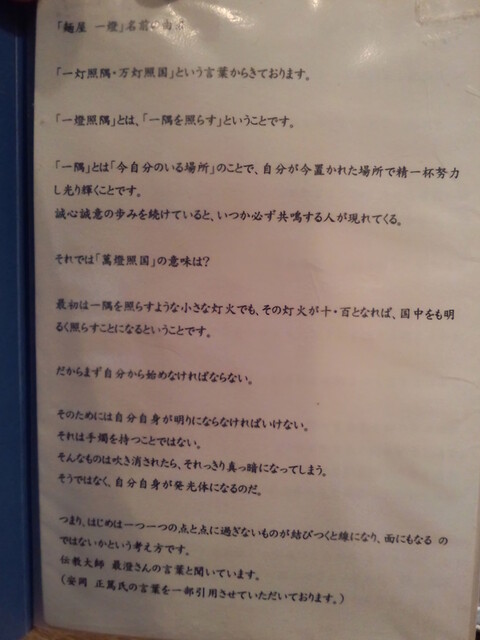 「麺屋 一燈」名前の由来
「一灯照隅・万灯照国」という言葉からきております。
「一燈照隅」とは、「一隅を照らす」ということです。
「一隅」とは「今自分のいる場所」のことで、自分が今置かれた場所で精一杯努力
し光り輝くことです。
誠心誠意の歩みを続けていると、いつか必ず共鳴する人が現れてくる。
それでは「萬燈照国」の意味は？
最初は一隅を照らすような小さな灯火でも、その灯火が十・百となれば、国中をも明
るく照らすことになるということです。
だからまず自分から始めなければならない。
そのためには自分自身が明りにならなければいけない。
それは手燭を持つことではない。
そんなものは吹き消されたら、それっきり真っ暗になってしまう。
そうではなく、自分自身が発光体になるのだ。
つまり、はじめは一つ一つの点と点に過ぎないものが結びつくと線になり、面にもなる の
ではないかという考え方です。
伝教大師 最澄さんの言葉と聞いています。
（安岡 正篤氏の言葉を一部引用させていただいております。）